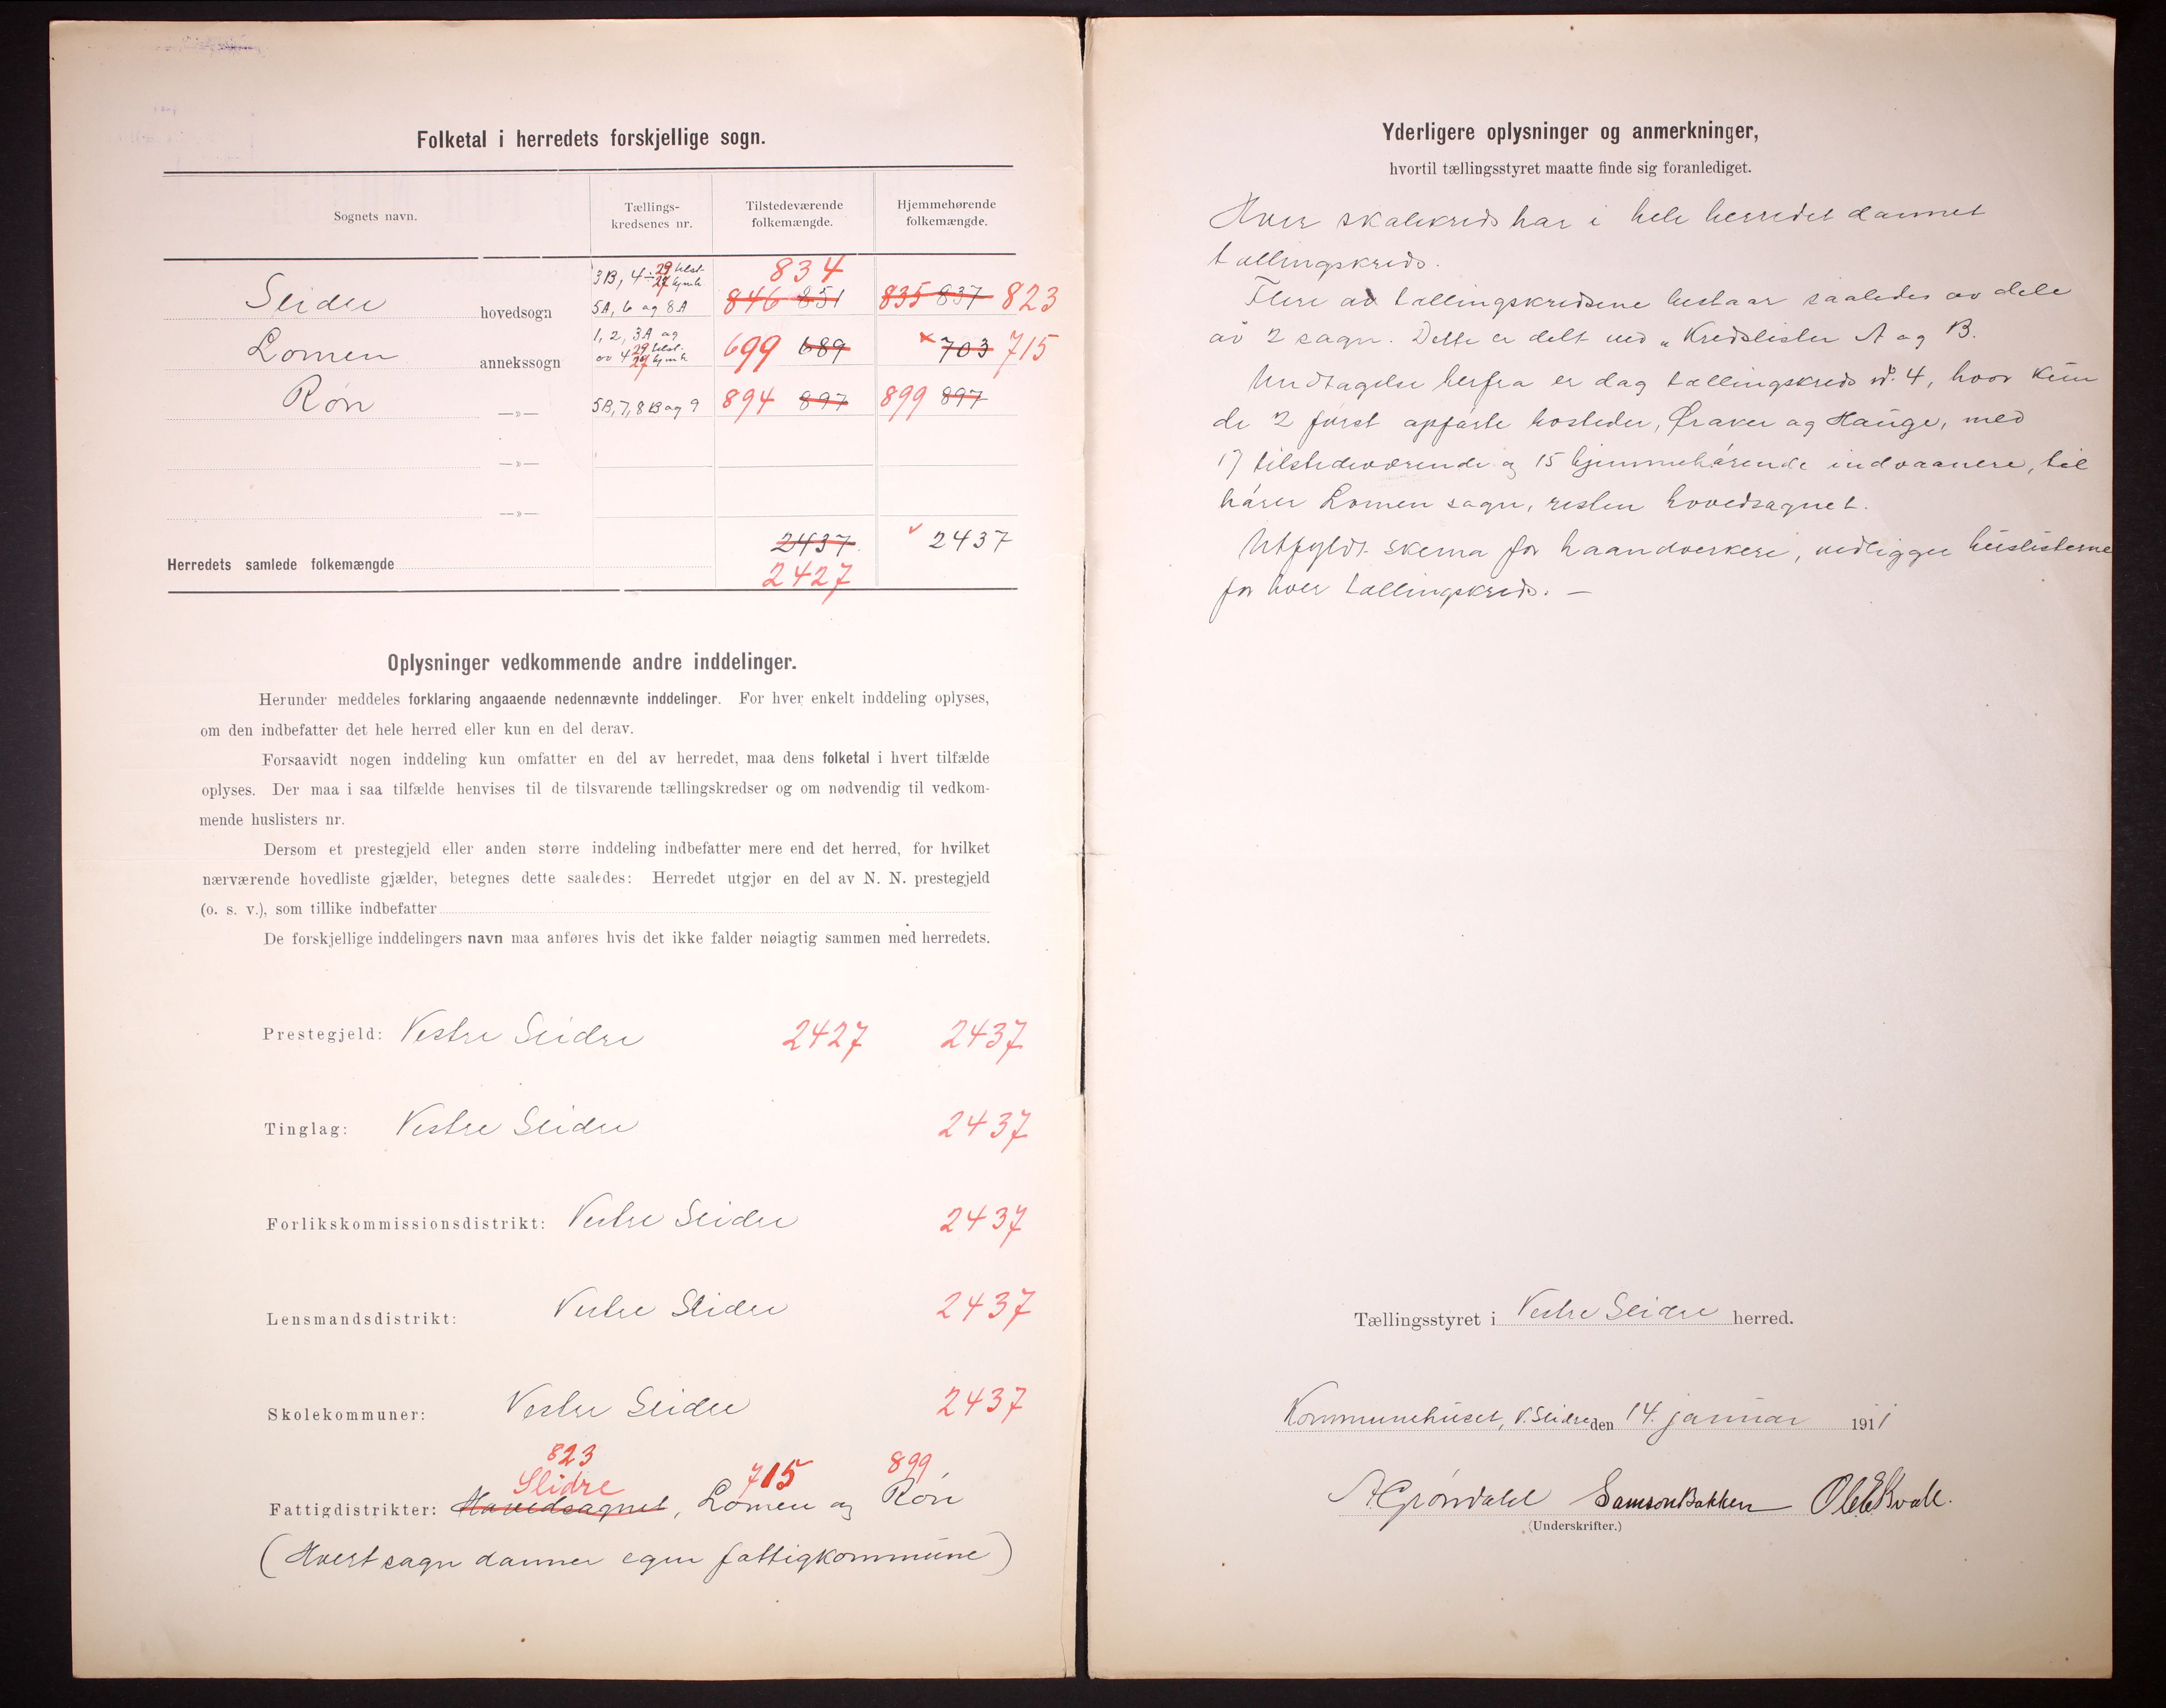 Folketal i herredets forskjellige sogn.
Sognets navn.
Tællings-
kredsenes nr.
Tilstedeværende
folkemængde.
Hjemmehørende
folkemængde.
3B, 4 ÷ 29 tilst.
27 hjmh.
834
Slidre hovedsogn 5A, 6 og 8A 846 851 835 837 823
1, 2, 3A og
Lomen annekssogn av 4 29 tilst. 699 689 703 715
27 hjmh
Røn —»— 5B, 7, 8B og 9 894 897 899 897
—»—
—»—
2437 2437
Herredets samlede folkemængde
2427
Oplysninger vedkommende andre inddelinger.
Herunder meddeles forklaring angaaende nedennævnte inddelinger. For hver enkelt inddeling oplyses,
om den indbefatter det hele herred eller kun en del derav.
Forsaavidt nogen inddeling kun omfatter en del av herredet, maa dens folketal i hvert tilfælde
oplyses. Der maa i saa tilfælde henvises til de tilsvarende tællingskredser og om nødvendig til vedkom-
mende huslisters nr.
Dersom et prestegjeld eller anden større inddeling indbefatter mere end det herred, for hvilket
nærværende hovedliste gjælder, betegnes dette saaledes: Herredet utgjør en del av N. N. prestegjeld
(o. s. v.), som tillike indbefatter
De forskjellige inddelingers navn maa anføres hvis det ikke falder nøiagtig sammen med herredets.
Prestegjeld: Vestre Slidre 2427 2437
Tinglag: Vestre Slidre 2437
Forlikskommissionsdistrikt: Vestre Slidre 2437
Lensmandsdistrikt: Vestre Slidre 2437
Skolekommuner: Vestre Slidre 2437
823
Slidre 715 899
Fattigdistrikter: Hovedsognet, Lomen og Røn
(Hvert sogn danner egen fattigkommune)
Yderligere oplysninger og anmerkninger,
hvortil tællingsstyret maatte finde sig foranlediget.
Hver skolekreds har i hele herredet dannet
tællingskreds.
Flere av tællingskredsene bestaar saaledes av dele
av 2 sogn. Dette er delt ved „Kredslister A og B.
Undtagelse herfra er dog tællingskreds nr. 4, hvor kun
de 2 først opførte bosteder, Øraker og Hauge, med
17 tilstedeværende og 15 hjemmehørende indvaanere, til
hører Lomen sogn, resten hovedsognet.
Utfyldt skema for haandverkere, vedligger huslisterne
for hver tællingskreds. —
Tællingsstyret i Vestre Slidre herred.
Kommunehuset, V. Slidre den 14. januar 1911
A Grøndahl Samson Bakken Ole E Kvale.
(Underskrifter.)